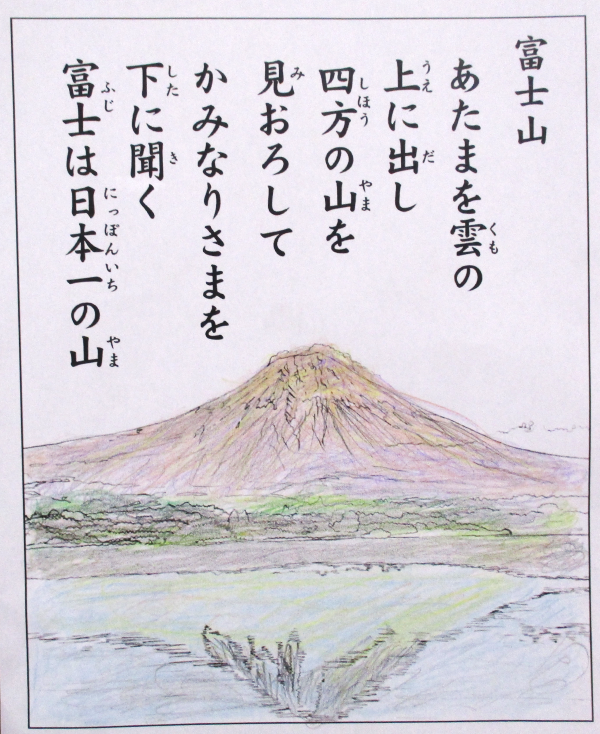 富士山
あたまを雲の
上に出し
四方の山を
見おろして
かみなりさまを
下に聞く
富士は日本一の山